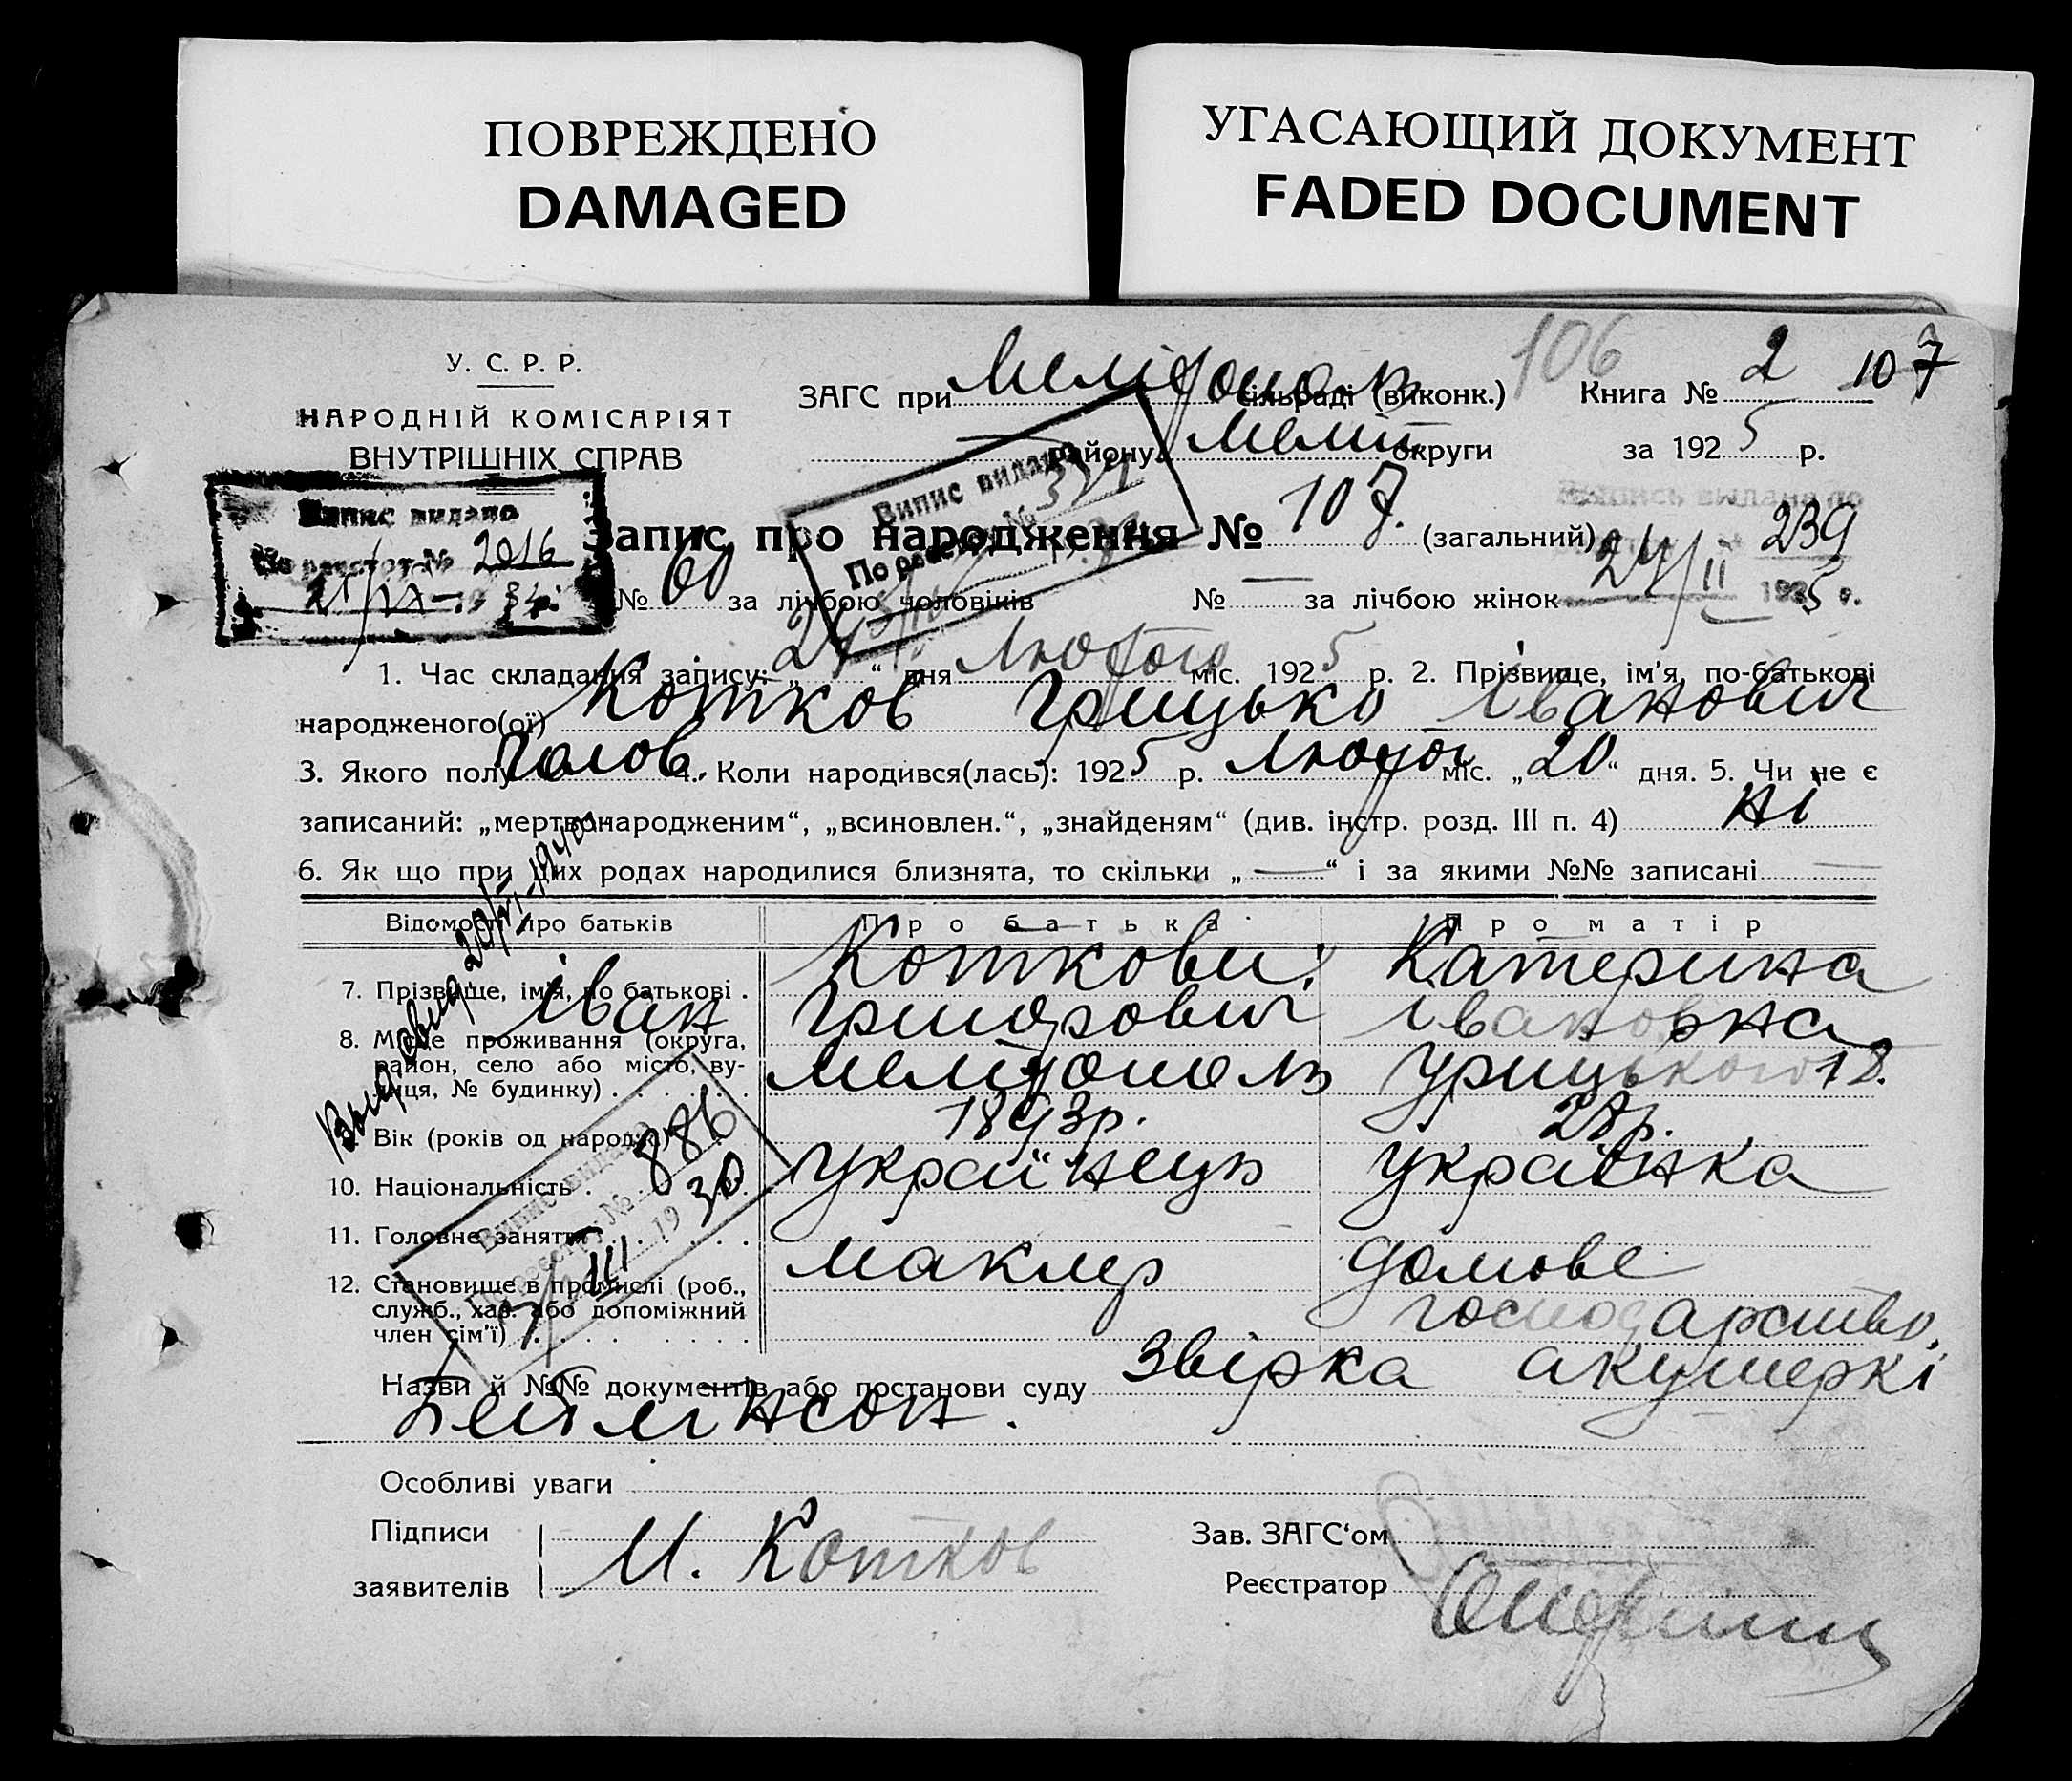 ПОВРЕЖДЕНО
DAMAGED
УГАСАЮЩИЙ ДОКУМЕНТ
FADED DOCUMENT
106
У. С. Р. Р.
НАРОДНІЙ КОМІСАРІЯТ
ВНУТРІШНІХ СПРАВ
ЗАГС при Мелітополь сільраді (виконк.) Книга № 2 107
району Меліт округи за 1925 р.
Випис видано
По реєстру № 2016
Випис видано
По реєстру №
Выпись выдана по
239
24/II 1935 г.
Запис про народження № 107. (загальний)
№ 60 за лічбою чоловіків № — за лічбою жінок
1. Час складання запису: „24“ дня Лютого міс. 1925 р. 2. Прізвище, ім’я, по-батькові
народженого(ої) Котков Грицько Іванович
3. Якого полу чолов. 4. Коли народився(лась): 1925 р. Лютого міс. „20“ дня. 5. Чи не є
записаний: „мертвонародженим“, „всиновлен.“, „знайденям“ (див. інстр. розд. III п. 4) ні
6. Як що при цих родах народилися близнята, то скільки „—“ і за якими №№ записані —
Відомості про батьків Про батька Про матір
7. Прізвище, ім’я, по батькові . Коткови: Катерина
Іван Григорович Івановна
8. Місце проживання (округа,
район, село або місто, вулиця, № будинку) . Мелітополь Урицького 18.
9. Вік (років од народж.) 1893р. 28р.
10. Національність . Українець Українка
11. Головне заняття . маклер домове
господарство.
12. Становище в промислі (роб.,
служб., хаз. або допоміжний
член сім’ї) .
Випис видано
По реєстру № 886
7/III 1930
Назви й №№ документів або постанови суду Звірка акушеркі
Особливі уваги
Підписи
заявителів И. Котков
Зав. ЗАГС‘ом
Реєстратор